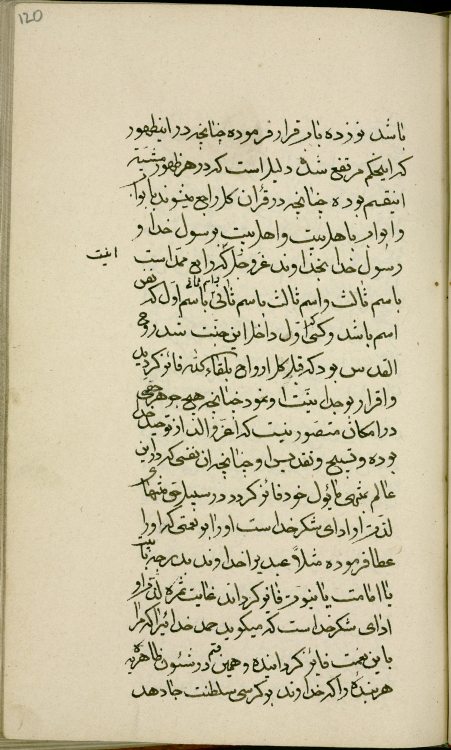 120
باشد نوزده باب قرار فرموده چنانچه در این ظهور
که این حکم مرتفع شده دلیل است که در هر ظهور مشیت
این قسم بوده چنانچه در قرآن کل راجع میشوند بابواب
و ابواب باهل بیت و اهل بیت برسول خدا و
رسول خدا بخداوند عز و جل که راجع
باسم ثالث و اسم ثالث باسم ثانی باسم اول که
اسم باشد و کسی که اول داخل این جنت شد روح
القدس بود که قبل کل ارواح بلقاء الله فائز گردید
و اقرار بوحدانیت او نمود چنانچه هیچ جوهر حبی
در امکان متصور نیست که اعز و الذ از توحید خدا
بوده و تسبیح و تقدیس او چنانچه ان نفسی که در این
عالم بمنتهی مایؤل خود فائز گردد در سبیل حق منتهای
لذت او ادای شکر خدا است او را بر نعمتی که او را
عطا فرموده مثلاً عبدی را خداوند بدرجه
یا امامت یا نبوت فائز گرداند غایت ثمره لذت او
ادای شکر خدا است که میگوید حمد خدائیرا که مرا
باین نعمت فائز گردانیده و همین قسم در شئون ظاهره
هر بنده را که خداوند بر کرسی سلطنت جا دهد